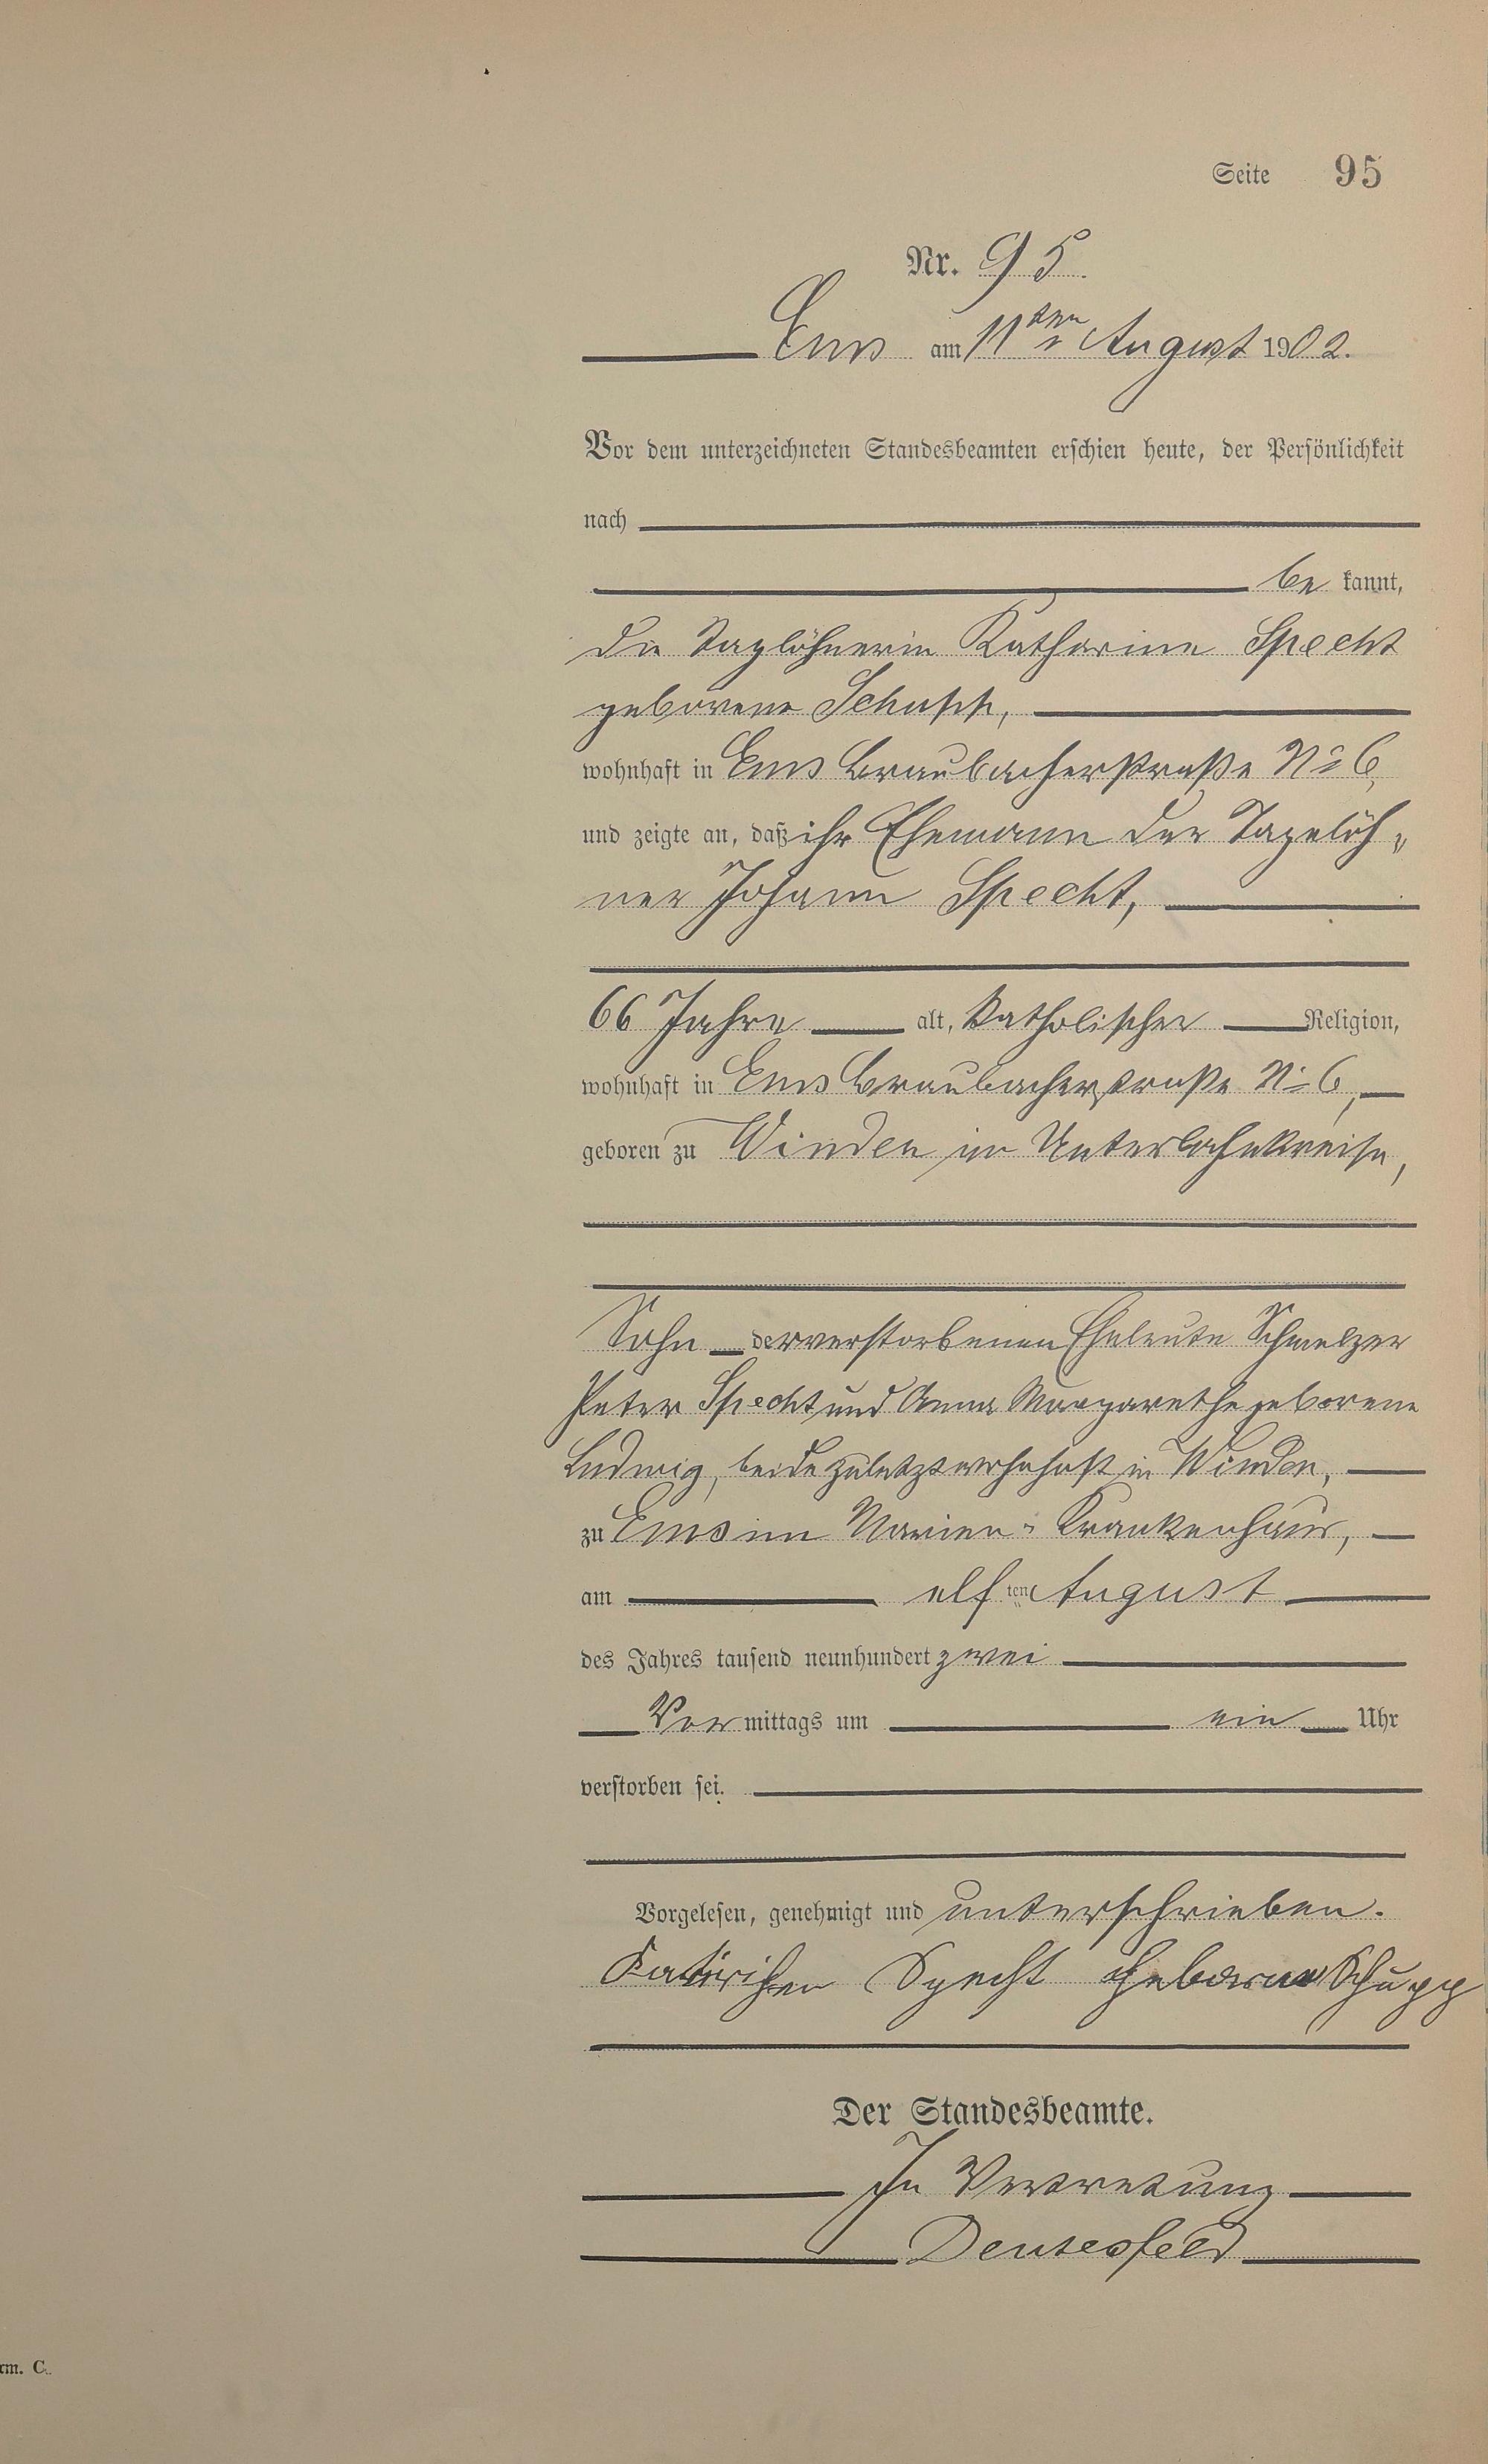 Seite 95
Nr. 95.
Ems am 11ten August 1902.
Vor dem unterzeichneten Standesbeamten erschien heute, der Persönlichkeit
nach
be kannt,
die Taglöhnerin Katharine Specht
geborene Schupp,
wohnhaft in Ems Braubacherstraße No 6,
und zeigte an, daß ihr Ehemann der Tagelöh„
ner Johann Specht,
66 Jahre alt, katholischer Religion,
wohnhaft in Ems Braubacherstraße No 6,
geboren zu Winden im Unterlahnkreise,
Sohn der verstorbenen Eheleute Schmelzer
Peter Specht und Anna Margarethe geborene
Ludwig, beide zuletzt wohnhaft in Winden,
zu Ems im Marien-Krankenhaus,
am elf ten August
des Jahres tausend neunhundert zwei
Vor mittags um ein Uhr
verstorben sei.
Vorgelesen, genehmigt und unterschrieben.
Specht geborne Schupp
Der Standesbeamte.
In Vertretung
rm. C.